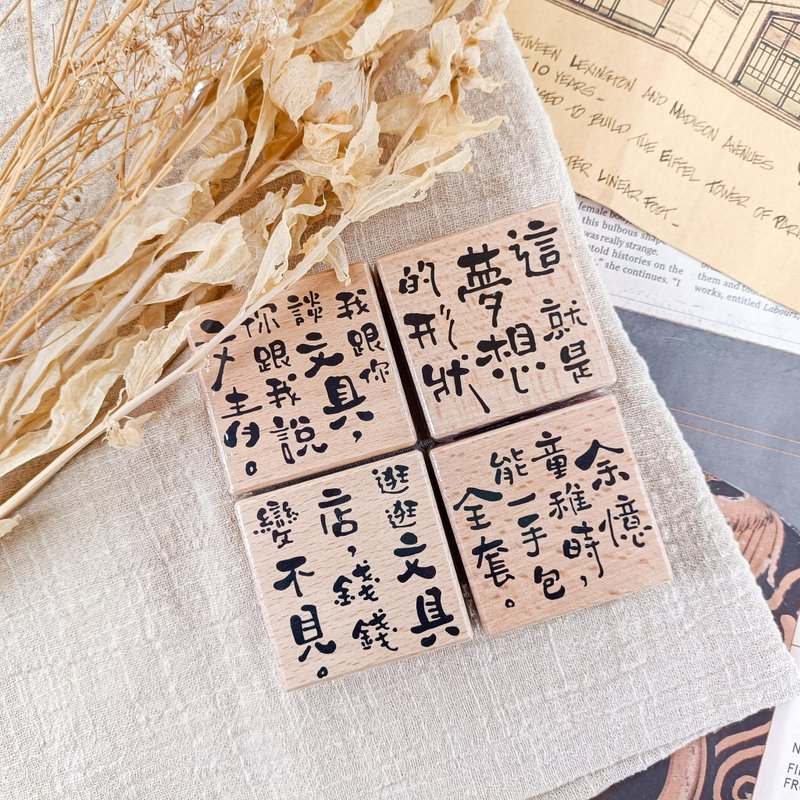 我跟你
談文具，
你跟我說
文青。
這就是
夢想
的形狀
逛逛文具
店，錢錢
變不見。
余憶
童稚時，
能一手包
全套。
LEXINGTON AND MADISON AVENUES
10 YEARS-
TO BUILD THE EIFFEL TOWER OF
LINEAR FOOT-
female
this bulbous
was really strange.
histories on the
" she continues. "I
them and
works, entitled Labours,